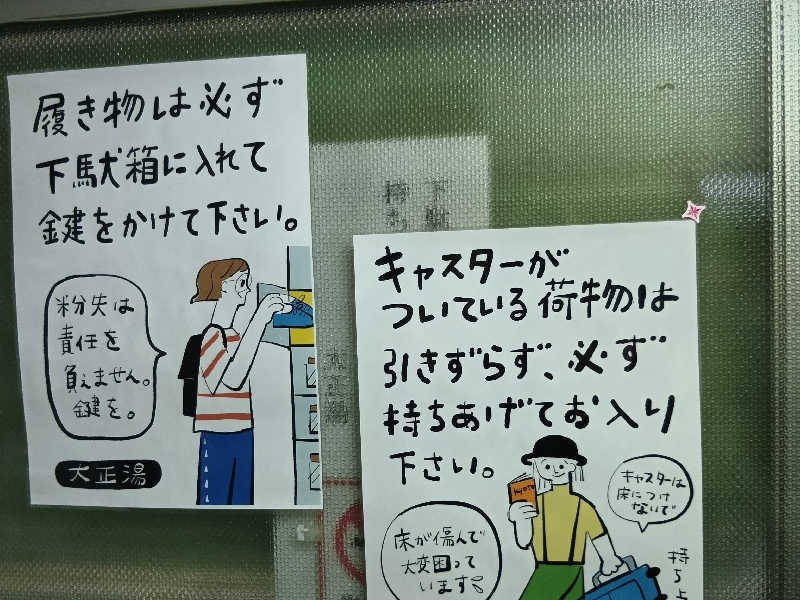 履き物は必ず
下駄箱に入れて
鍵をかけて下さい。
粉失は
責任を
負えません。
鍵を。
大正湯
キャスターが
ついている荷物は
引きずらず、必ず
持ちあげてお入り
下さい。
キャスターは
床につけ
ないで
床が傷んで
大変困って
います
持ち上